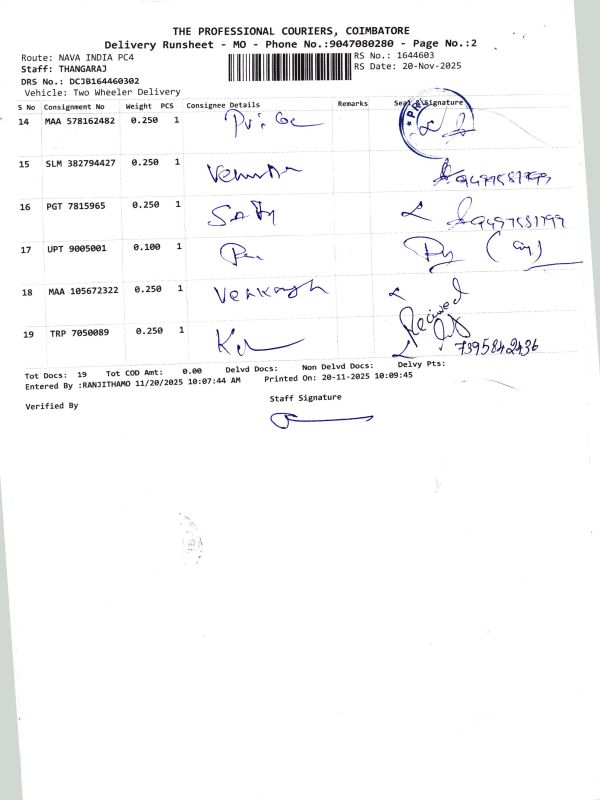 THE PROFESSIONAL COURIERS, COIMBATORE
Delivery Runsheet - MO - Phone No.:9047080280 - Page No.:2
Route: NAVA INDIA PC4
RS No.: 1644603
Staff: THANGARAJ
RS Date: 20-Nov-2025
DRS No.: DCJB164460302
Vehicle: Two Wheeler Delivery
S No Consignment No Weight PCS Consignee Details Remarks Seal & Signature
14 MAA 578162482 0.250 1
15 SLM 382794427 0.250 1
16 PGT 7815965 0.250 1
17 UPT 9005001 0.100 1
18 MAA 105672322 0.250 1
Received
19 TRP 7050089 0.250 1
7395842436
Tot Docs: 19 Tot COD Amt: 0.00 Delvd Docs: Non Delvd Docs: Delvy Pts:
Entered By :RANJITHAMO 11/20/2025 10:07:44 AM Printed On: 20-11-2025 10:09:45
Verified By
Staff Signature